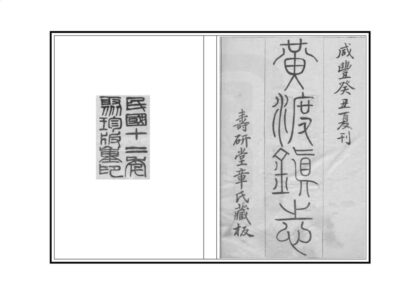 咸豐癸丑夏刊
黃渡鎭志
壽研堂章氏藏板
民國十二年
聚珍版重印